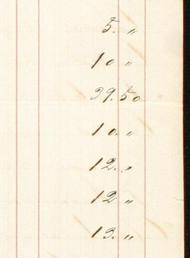 5. "
10 "
39.50
10. "
12. "
12 "
13. "